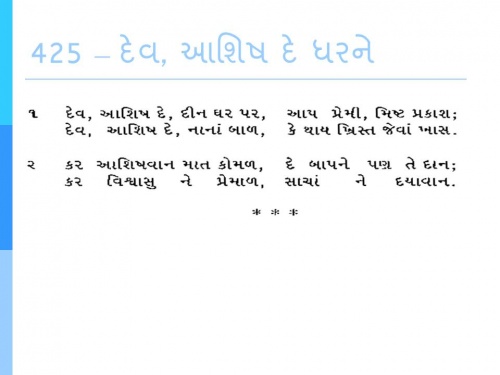 425 – દેવ, આશિષ દે ધરને
૧ દેવ, આશિષ દે, દીન ઘર પર, આપ પ્રેમી, મિષ્ટ પ્રકાશ;
દેવ, આશિષ દે, નાનાં બાળ, કે થાય ખ્રિસ્ત જેવાં ખાસ.
ર કર આશિષવાન માત કોમળ, દે બાપને પણ તે દાન;
કર વિશ્વાસુ ને પ્રેમાળ, સાચાં ને દયાવાન.
* * *